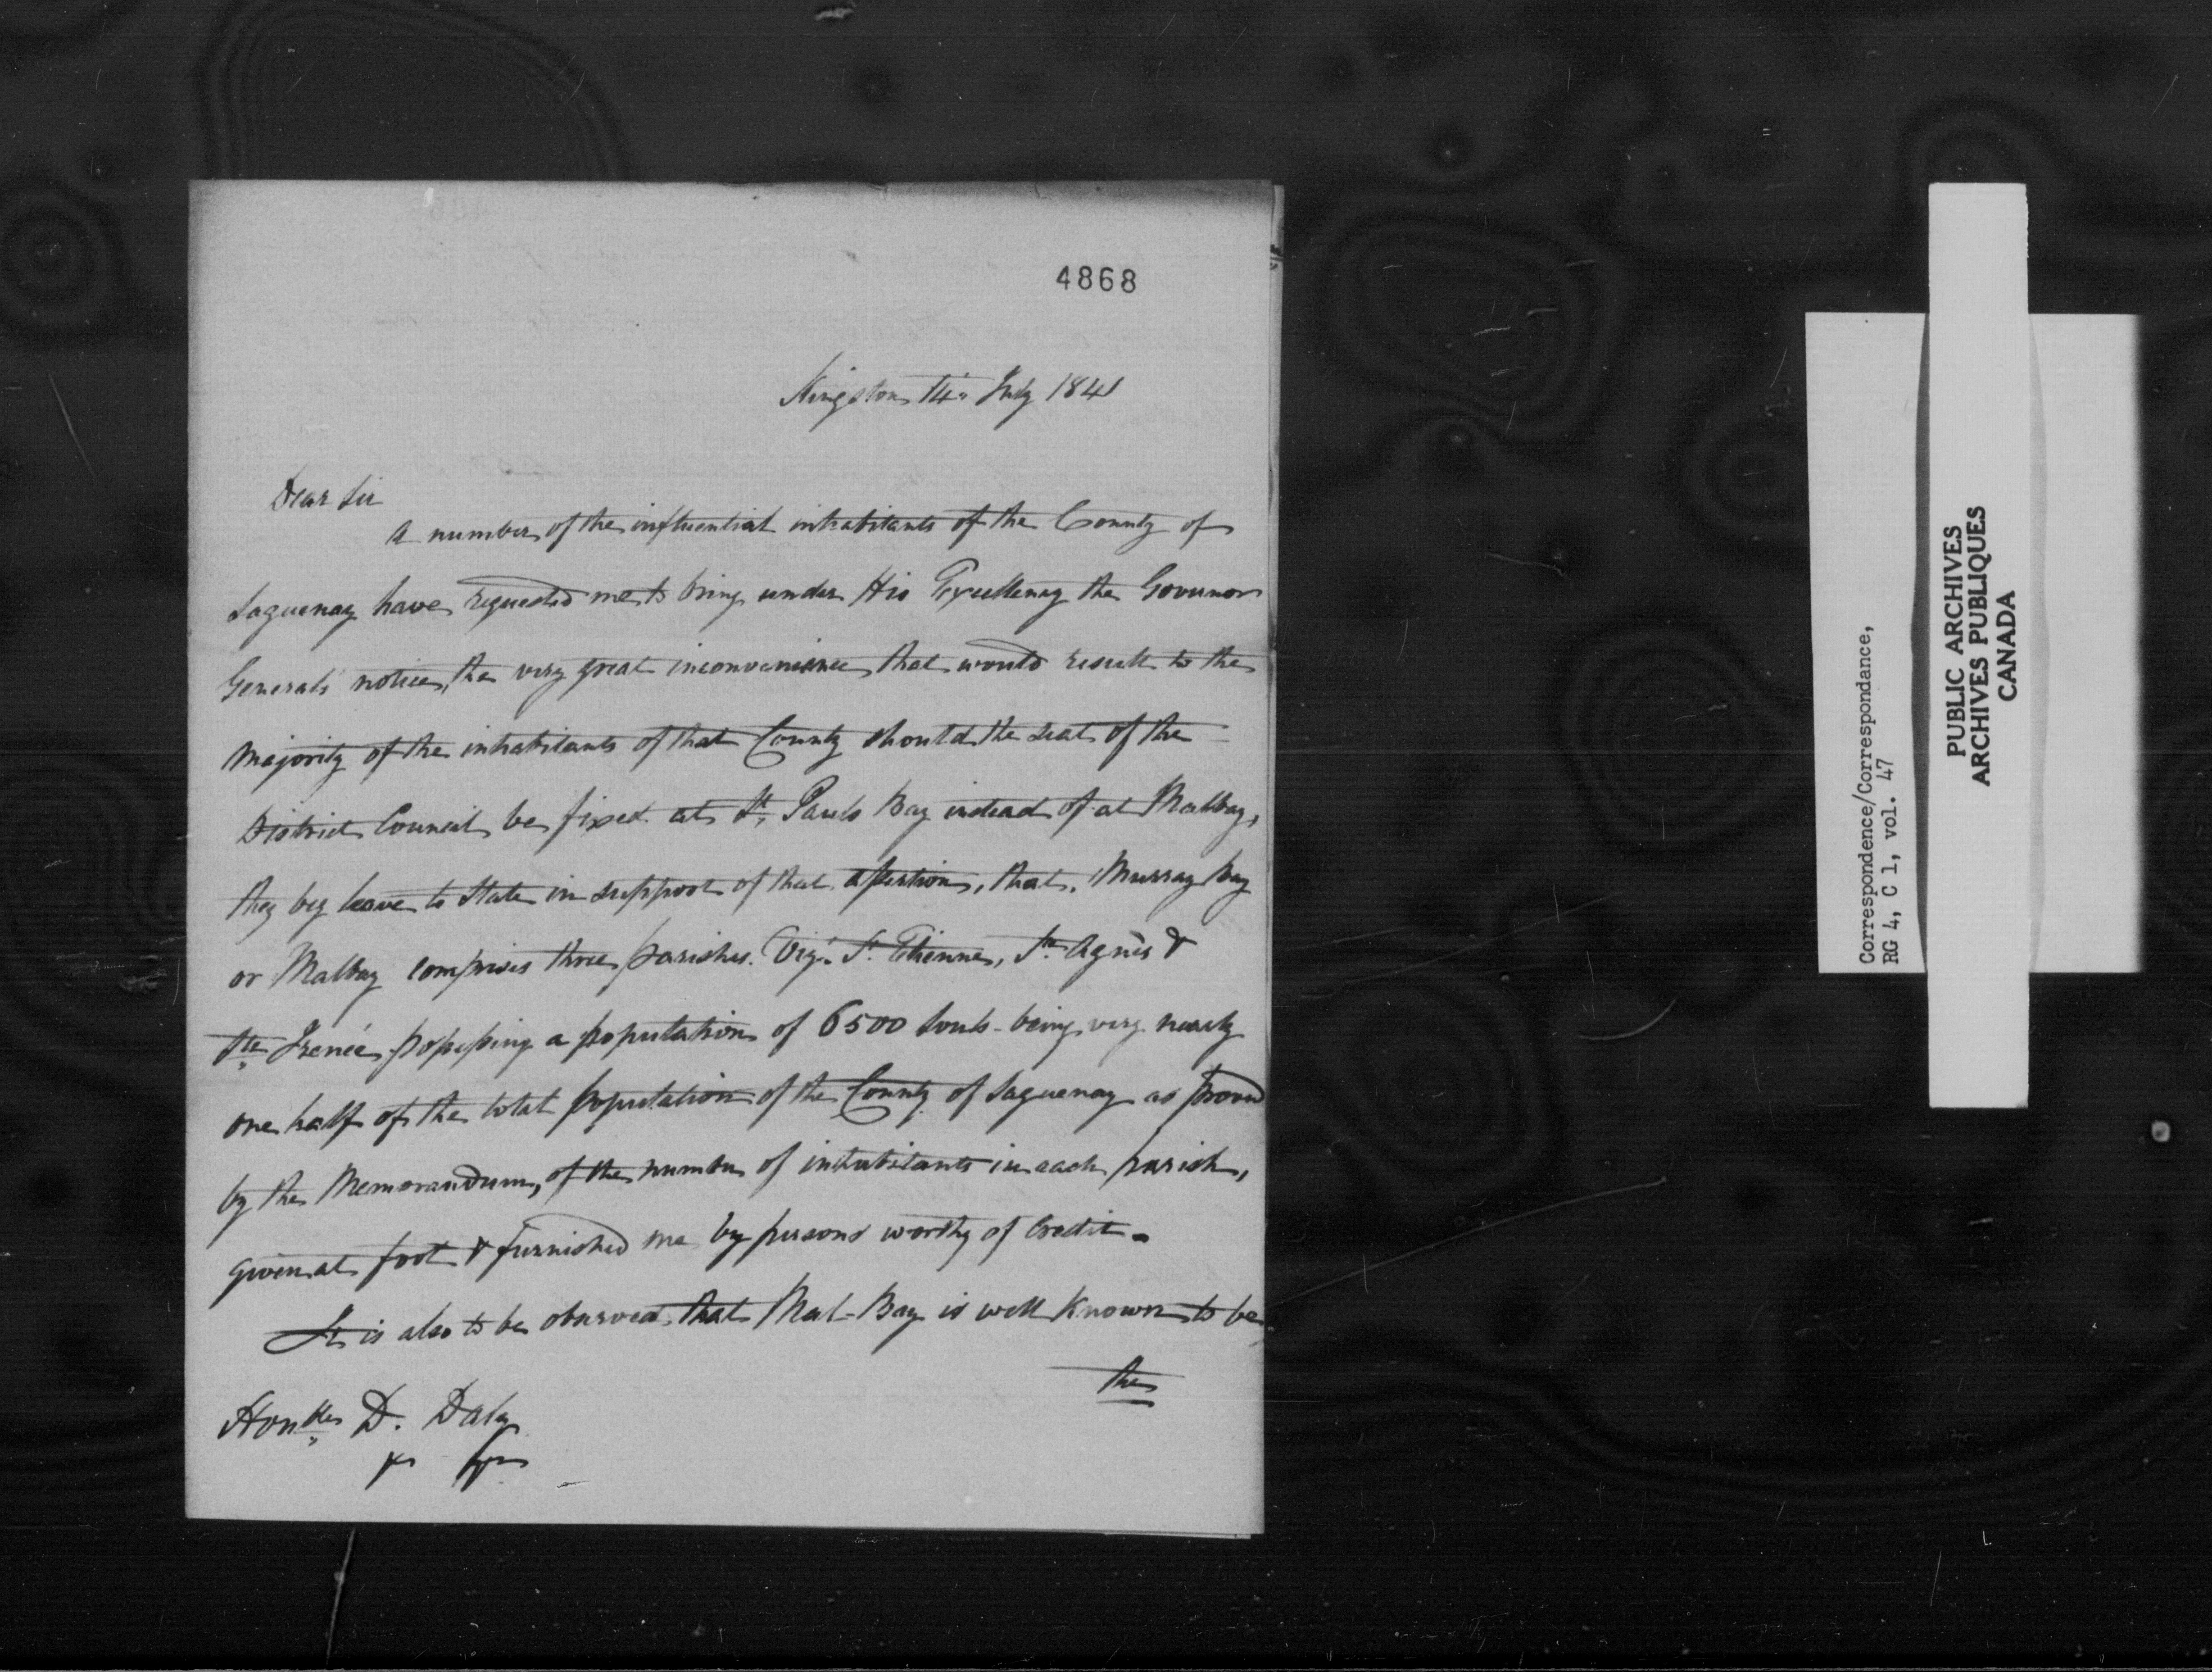 4868
Kingston 14 July 1841
Dear Sir
A number of the influential inhabitants of the County of
Saguenay have requested me to bring under His Excellency the Governor
Generals notice, the very great inconvenience that would result to the
Majority of the inhabitants of that County should the seat of the
District Council be fixed at St. Pauls Bay instead of at Malbay,
they beg leave to State in support of that assertion, that, Murray Bay
or Malbay comprises three parishes. Viz: St. Etienne, Ste. Agnès &
Ste. Irenée possessing a population of 6500 Souls - being very nearly
one half of the total population of the County of Saguenay as proved
by the Memorandum, of the number of inhabitants in each parish,
given at foot & furnished me by persons worthy of Credit -
It is also to be observed that Mal-Bay is well Known to be
the
Honble D. Daly
Correspondence/Correspondance,
RG 4, C 1, vol. 47
PUBLIC ARCHIVES
ARCHIVES PUBLIQUES
CANADA